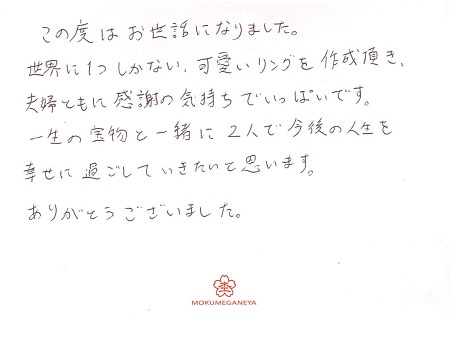 この度はお世話になりました。
世界に1つしかない、可愛いリングを作成頂き、
夫婦ともに感謝の気持ちでいっぱいです。
一生の宝物と一緒に2人で今後の人生を
幸せに過ごしていきたいと思います。
ありがとうございました。
MOKUMEGANEYA